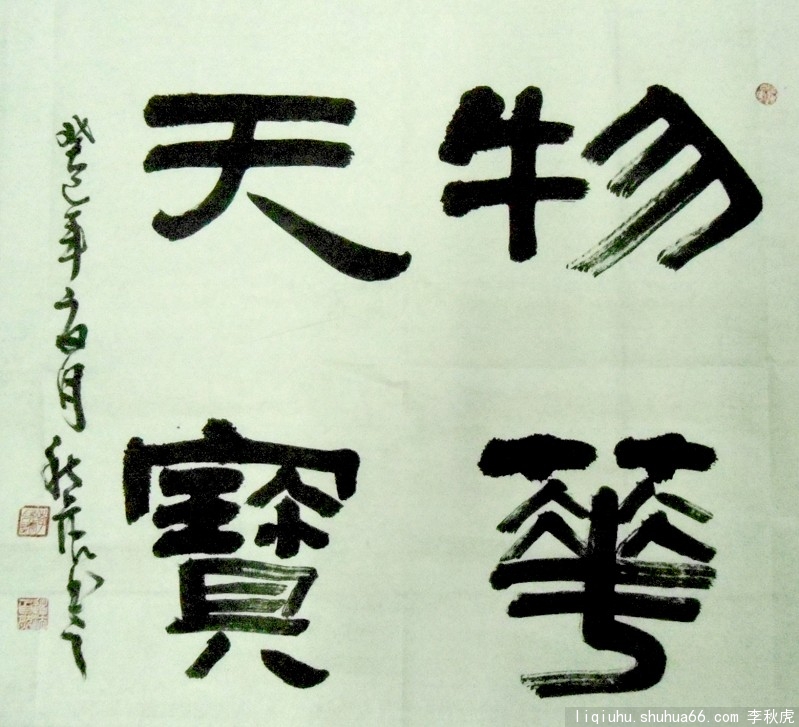 物華
天寶
癸巳年
秋虎书
liqiuhu.shuhua66.com 李秋虎